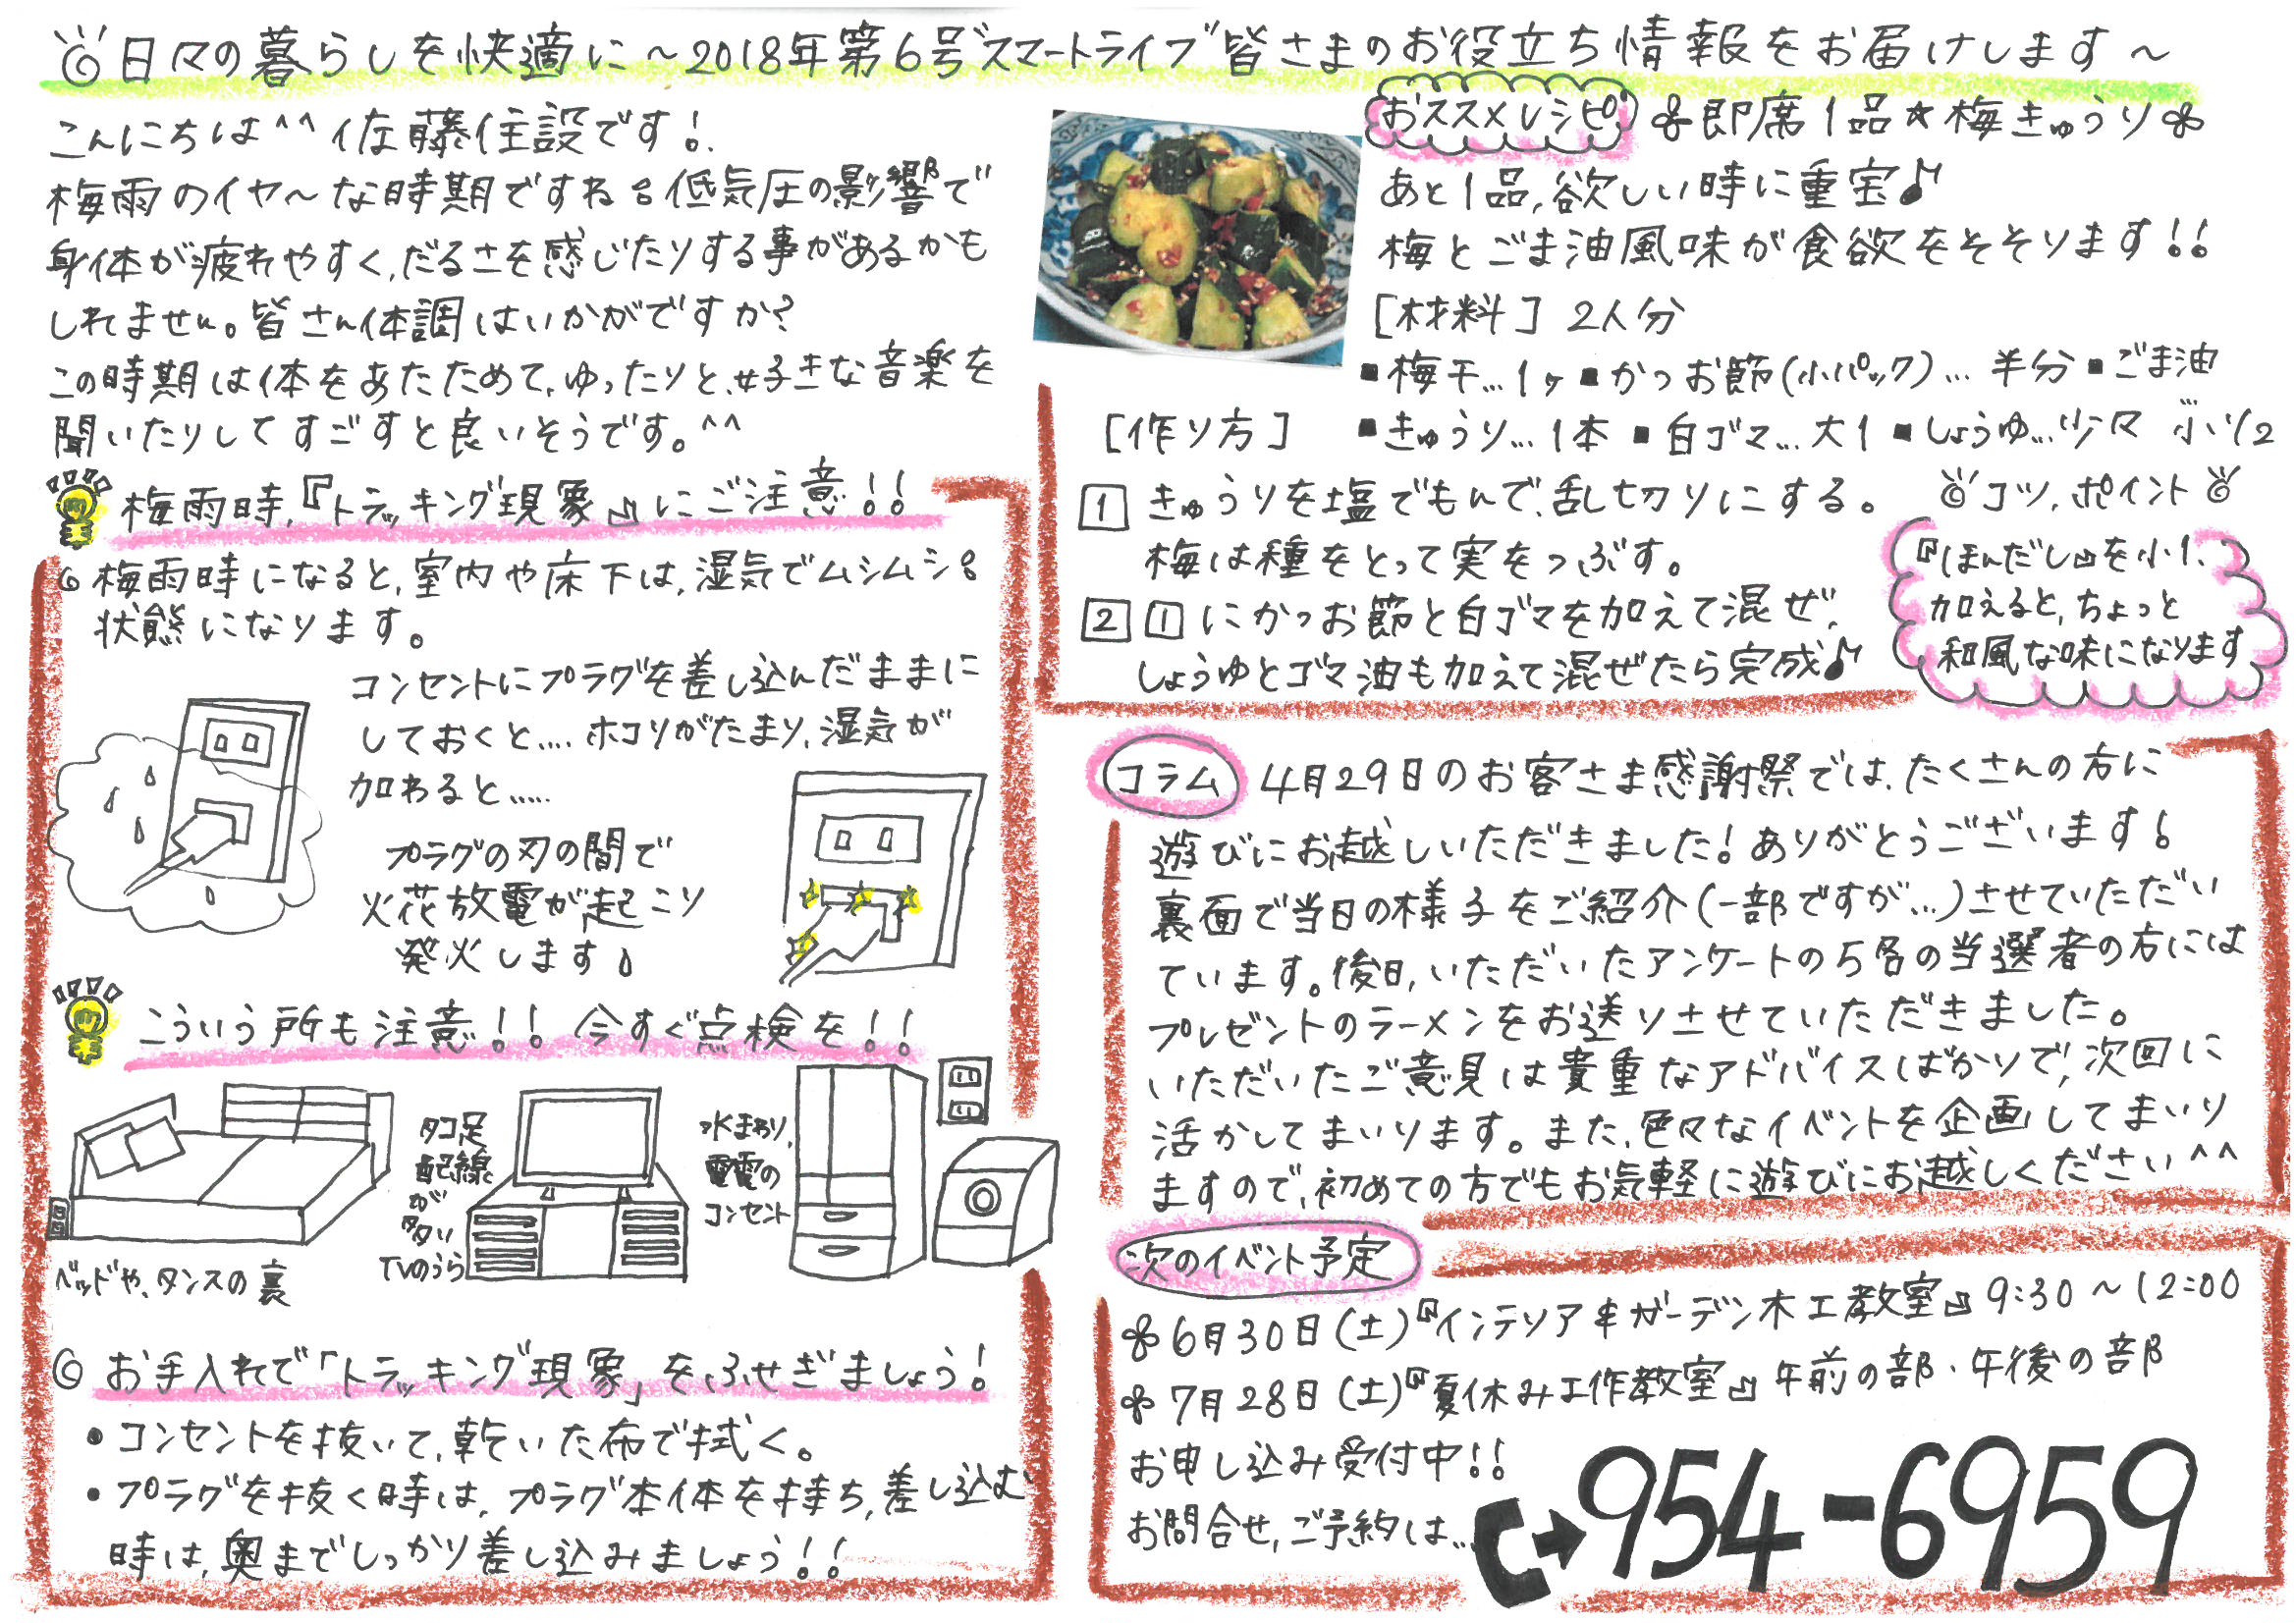 日々の暮らしを快適に～2018年第6号"スマートライフ"皆さまのお役立ち情報をお届けします～
こんにちは^^佐藤住設です!
梅雨のイヤ～な時期ですね。低気圧の影響で
身体が疲れやすく、だるさを感じたりする事があるかも
しれません。皆さん体調はいかがですか?
この時期は体をあたためて、ゆったりと、好きな音楽を
聞いたりしてすごすと良いそうです。^^
梅雨時、『トラッキング現象』にご注意!!
梅雨時になると、室内や床下は、湿気でムシムシ
状態になります。
コンセントにプラグを差し込んだままに
しておくと....ホコリがたまり、湿気が
加わると.....
プラグの刃の間で
火花放電が起こり
発火します!
こういう所も注意!! 今すぐ点検を!!
ベッドや、タンスの裏
タコ足
配線
が
多い
TVのうら
水まわり、
電電の
コンセント
◎お手入れで「トラッキング現象」をふせぎましょう!
・コンセントを抜いて、乾いた布で拭く。
・プラグを抜く時は、プラグ本体を持ち、差し込む
時は、奥までしっかり差し込みましょう!!
おススメレシピ 即席1品★梅きゅうり
あと1品、欲しい時に重宝♪
梅とごま油風味が食欲をそそります!!
[材料] 2人分
■梅干...1ヶ ■かつお節(小パック)...半分 ■ごま油
■きゅうり...1本 ■白ゴマ...大1 ■しょうゆ...少々 小1/2
[作り方]
1 きゅうりを塩でもんで、乱切りにする。
梅は種をとって実をつぶす。
2 1にかつお節と白ゴマを加えて混ぜ、
しょうゆとゴマ油も加えて混ぜたら完成♪
◎コツ、ポイント◎
『ほんだし』を小1、
加えると、ちょっと
和風な味になります
コラム 4月29日のお客さま感謝祭では、たくさんの方に
遊びにお越しいただきました!ありがとうございます!
裏面で当日の様子をご紹介(一部ですが...)させていただい
ています。後日、いただいたアンケートの5名の当選者の方には
プレゼントのラーメンをお送りさせていただきました。
いただいたご意見は貴重なアドバイスばかりで、次回に
活かしてまいります。また、色々なイベントを企画してまいり
ますので、初めての方でもお気軽に遊びにお越しください^^
次のイベント予定
6月30日(土)『インテリア&ガーデン木工教室』9:30～12:00
7月28日(土)『夏休み工作教室』午前の部・午後の部
お申し込み受付中!!
お問合せ、ご予約は...
954-6959